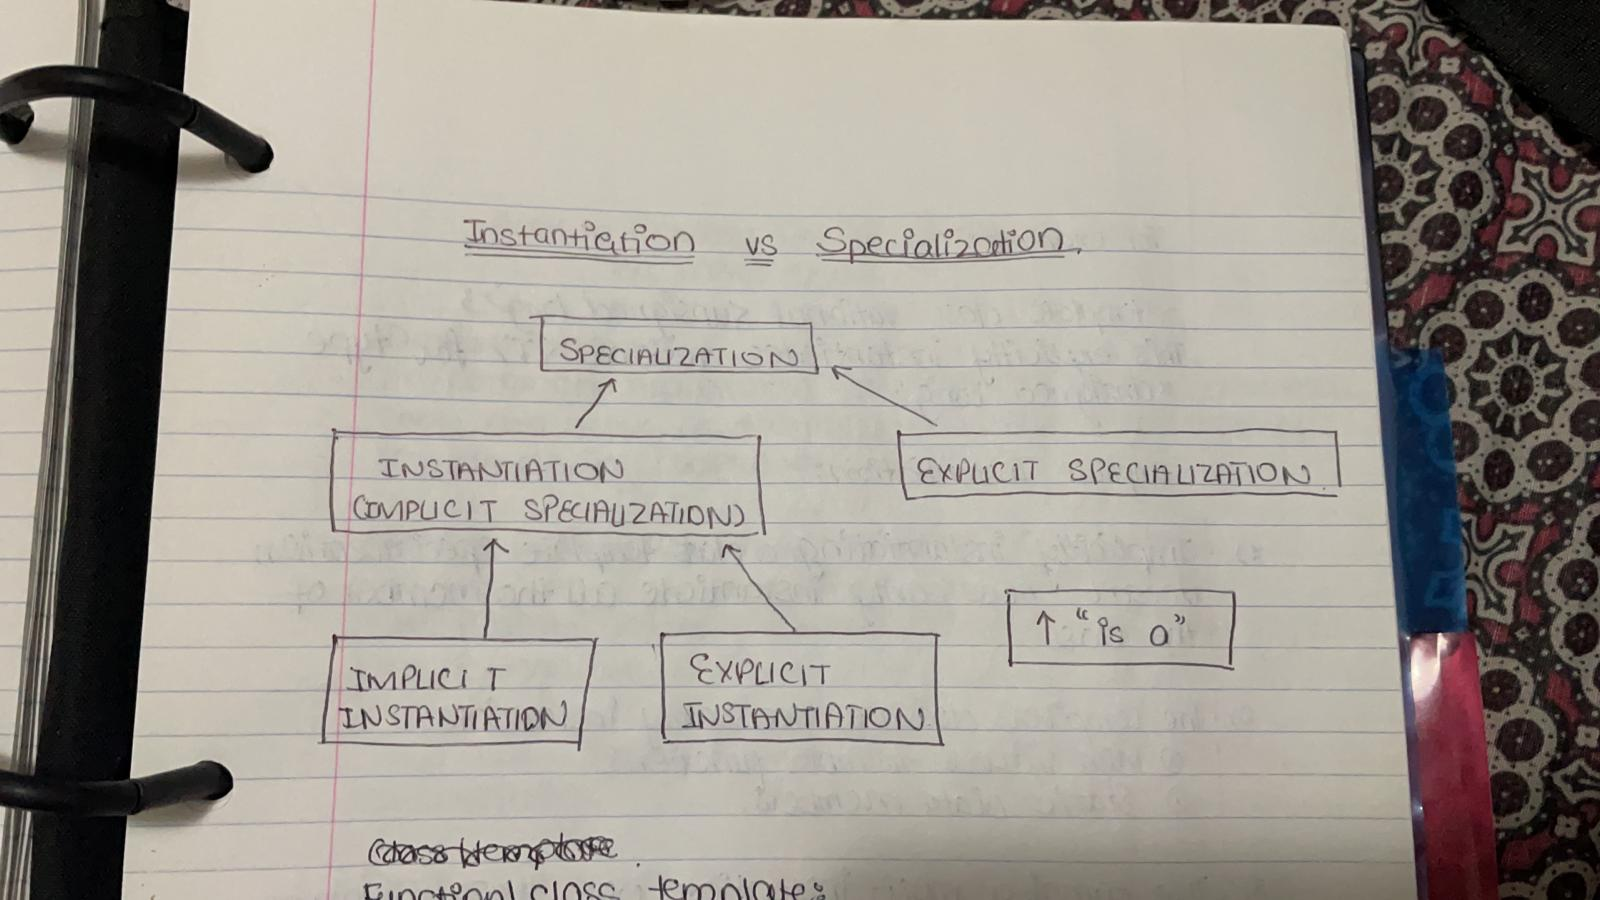 Instantiation vs Specialization.
SPECIALIZATION
INSTANTIATION
(IMPLICIT SPECIALIZATION)
EXPLICIT SPECIALIZATION.
↑ "is a"
IMPLICIT
INSTANTIATION
EXPLICIT
INSTANTIATION
class template
Function/class template: